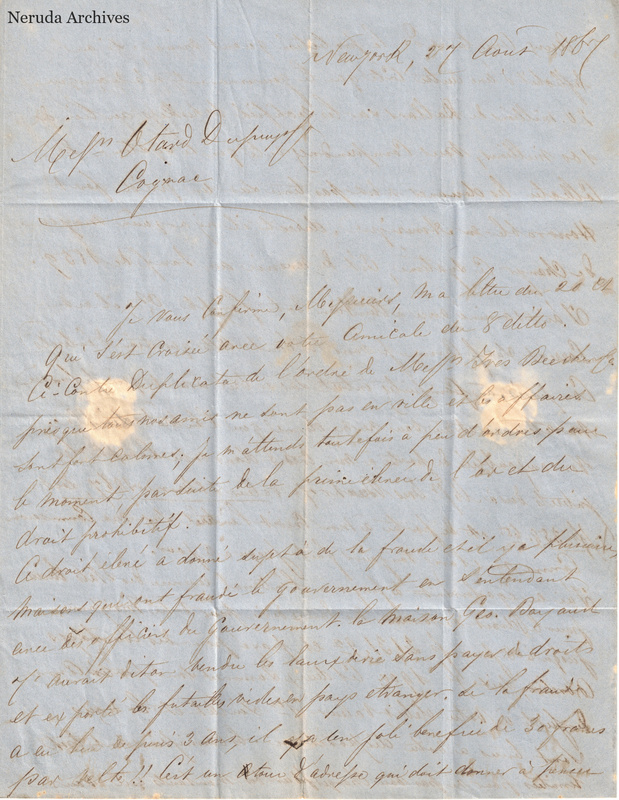 Neruda Archives
New york, 27 Août 1867
Messrs Otard Dupuy & Co
Cognac
Je vous Confirme, Messieurs, ma lettre du 20 Ct
qui s'est croisée avec votre amicale du 8 ditto.
Ci-Contre Duplicata de l'ordre de Messrs
presque tous nos amis ne sont pas en ville et les affaires
sont fort calmes; je m'attends toutefois à peu d'ordres pour
le moment, par suite de la prime élevée de l'or et du
droit prohibitif.
Ce droit élevé a donné sujet à de la fraude et il y a plusieurs
maisons qui ont fraudé le gouvernement en s'entendant
avec des officiers du Gouvernement. la maison Geo.
aurait dit on vendre les sans payer de droits
et exporté les futailles vides en pays étranger. la fraude
a eu lieu depuis 2 ans, il y a un joli bénéfice de 30 francs
par velte!! C'est un tour d'adresse qui doit donner à penser